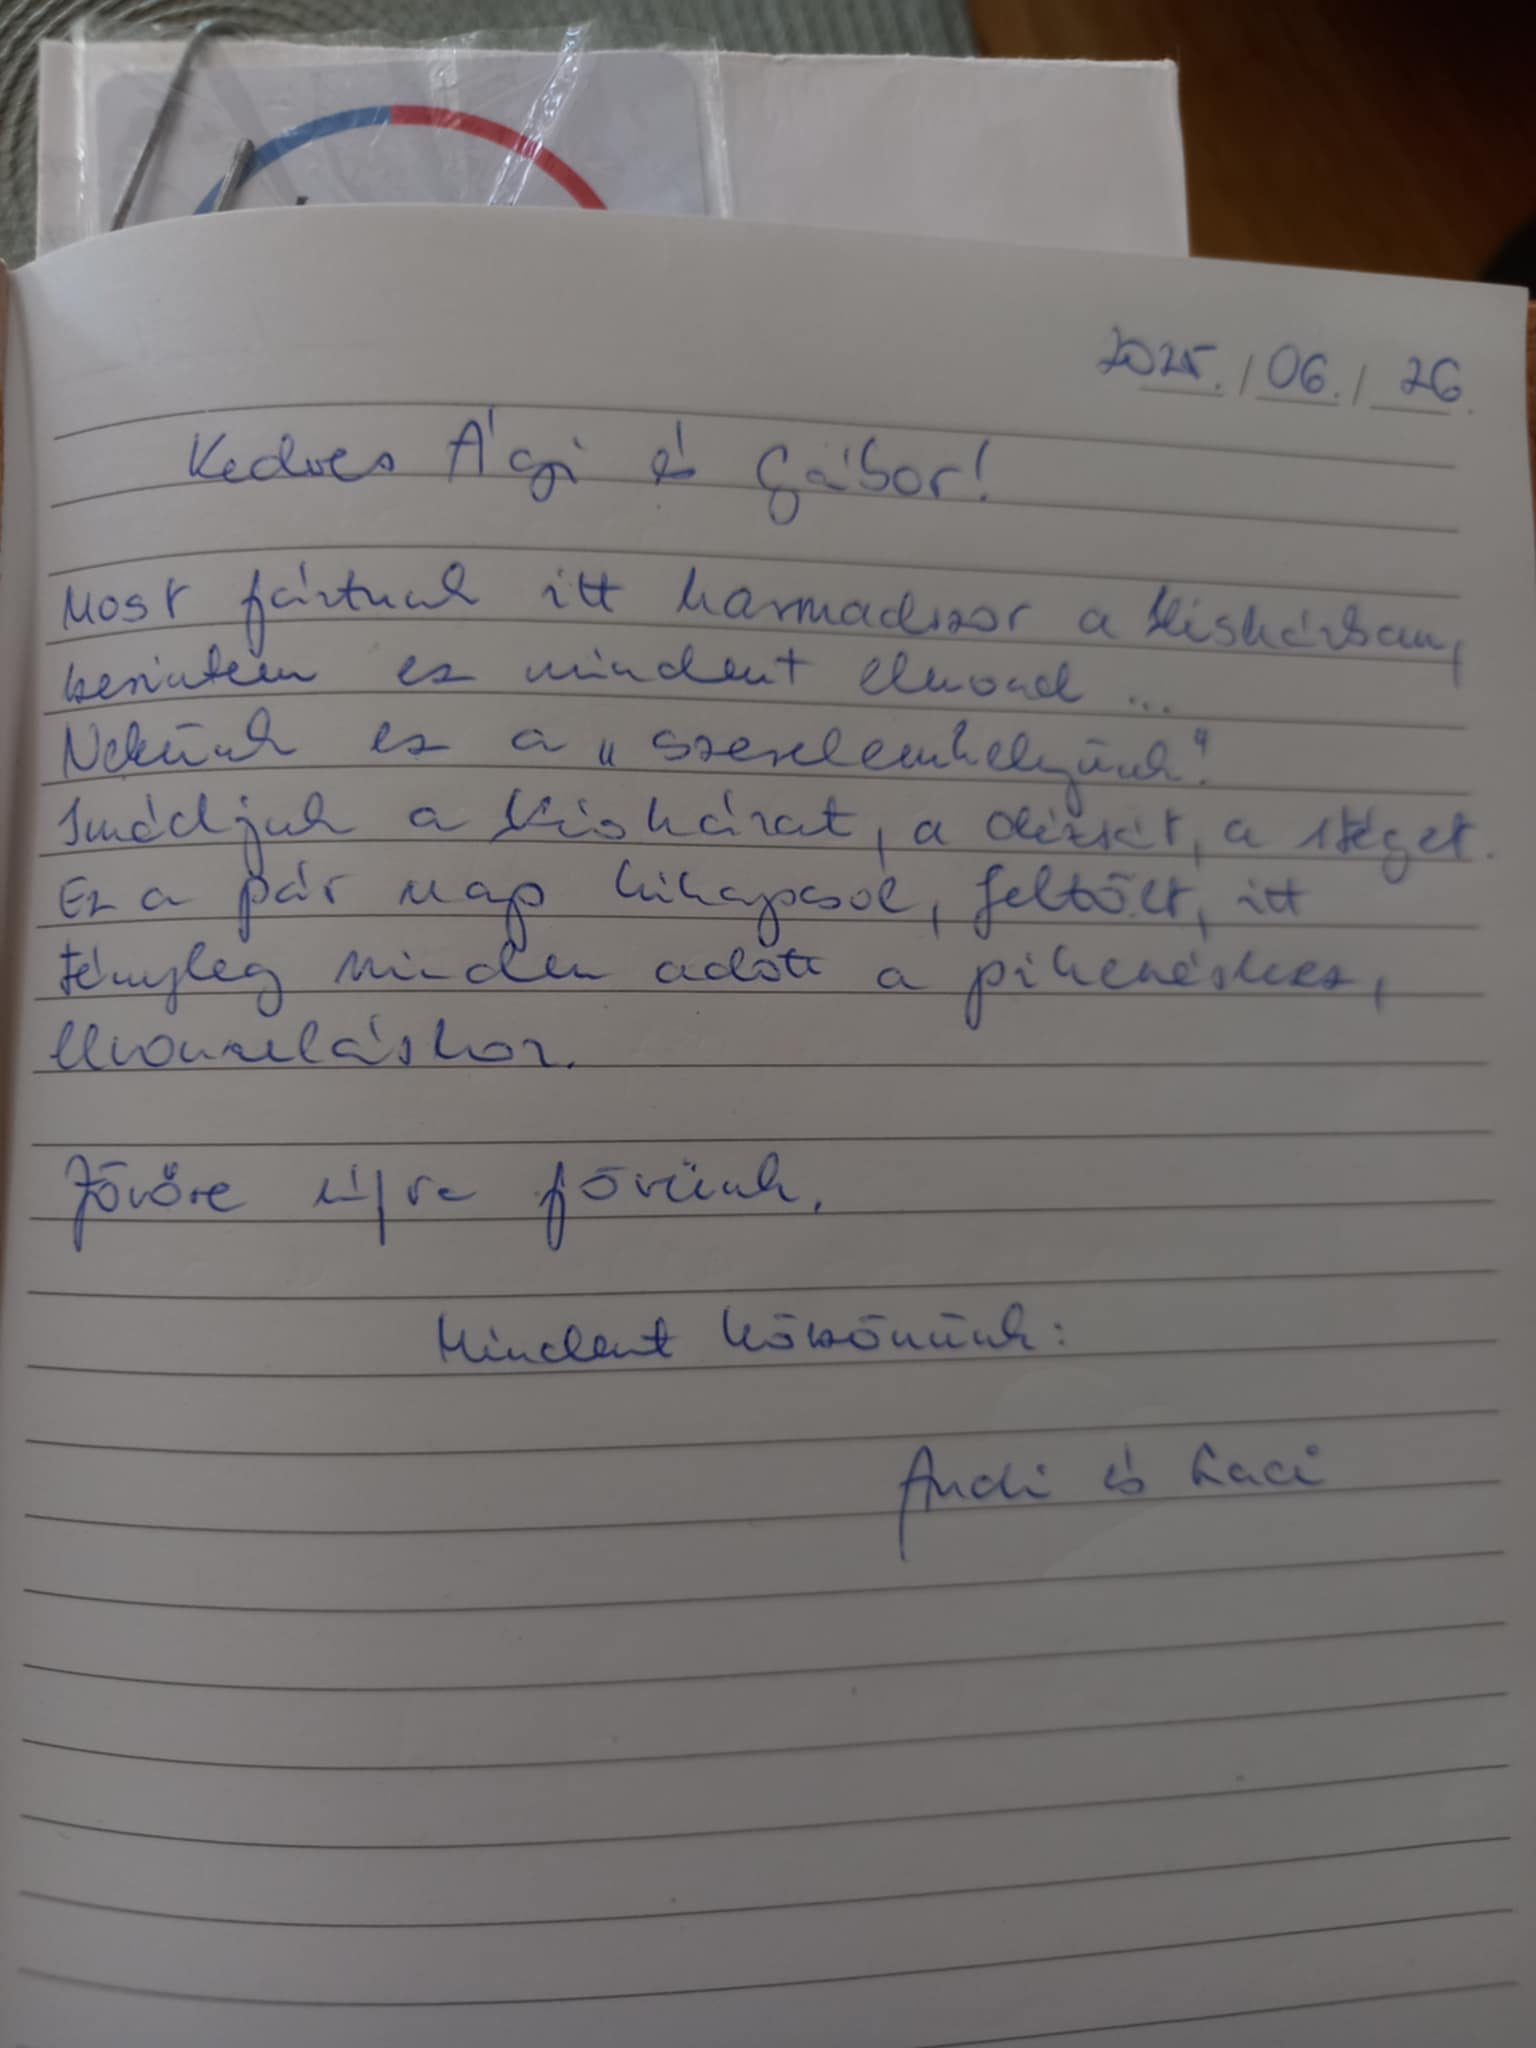 2025./06./26.
Kedves Ági és Gábor!
Most jártunk itt harmadszor a Kisházban,
szerintem ez mindent elmond ...
Nekünk ez a „szerelemhelyünk".
Imádjuk a Kisházat, a dézsát, a stéget.
Ez a pár nap kikapcsol, feltölt, itt
tényleg minden adott a pihenéshez,
elvonuláshoz.
Jövőre újra jövünk.
Mindent köszönünk:
Andi és Laci